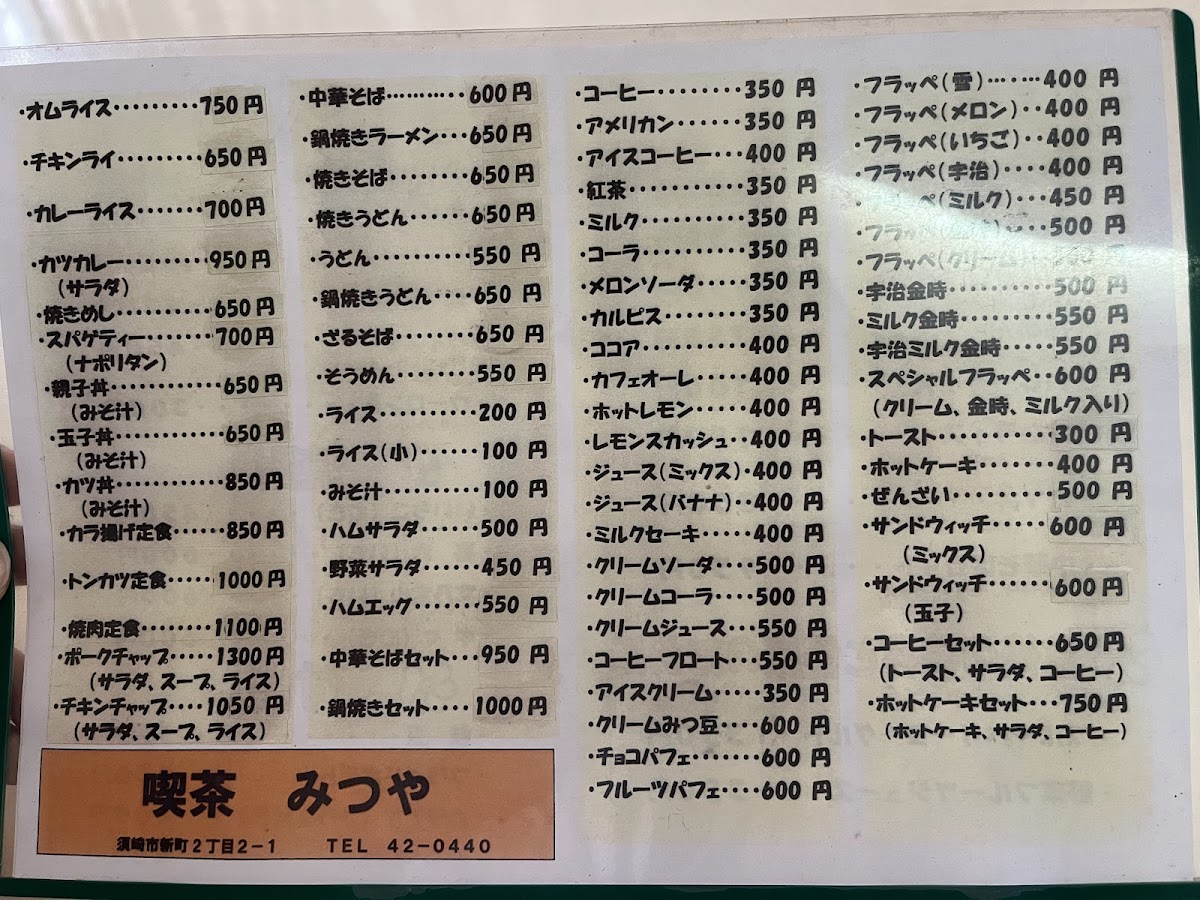 ・オムライス・・・・・・・・・750円
・チキンライ・・・・・・・・・650円
・カレーライス・・・・・・・700円
・カツカレー・・・・・・・・・950円
(サラダ)
・焼きめし・・・・・・・・・・650円
・スパゲティー・・・・・・・700円
(ナポリタン)
・親子丼・・・・・・・・・・・・650円
(みそ汁)
・玉子丼・・・・・・・・・・・・650円
(みそ汁)
・カツ丼・・・・・・・・・・・・850円
(みそ汁)
・カラ揚げ定食・・・・・・850円
・トンカツ定食・・・・・1000円
・焼肉定食・・・・・・・・1100円
・ポークチャップ・・・・・1300円
(サラダ、スープ、ライス)
・チキンチャップ・・・・1050円
(サラダ、スープ、ライス)
・中華そば・・・・・・・・・・・600円
・鍋焼きラーメン・・・650円
・焼きそば・・・・・・・・650円
・焼きうどん・・・・・・・650円
・うどん・・・・・・・・・・・550円
・鍋焼きうどん・・・・650円
・ざるそば・・・・・・・・650円
・そうめん・・・・・・・・550円
・ライス・・・・・・・・・・200円
・ライス(小)・・・・・・100円
・みそ汁・・・・・・・・・・100円
・ハムサラダ・・・・・・500円
・野菜サラダ・・・・・・450円
・ハムエッグ・・・・・・・550円
・中華そばセット・・・950円
・鍋焼きセット・・・・1000円
・コーヒー・・・・・・・・350円
・アメリカン・・・・・・・350円
・アイスコーヒー・・・400円
・紅茶・・・・・・・・・・・350円
・ミルク・・・・・・・・・・350円
・コーラ・・・・・・・・・・350円
・メロンソーダ・・・・・350円
・カルピス・・・・・・・・350円
・ココア・・・・・・・・・・400円
・カフェオーレ・・・・・400円
・ホットレモン・・・・・400円
・レモンスカッシュ・・400円
・ジュース(ミックス)・400円
・ジュース(バナナ)・・400円
・ミルクセーキ・・・・・400円
・クリームソーダ・・・・500円
・クリームコーラ・・・・500円
・クリームジュース・・・550円
・コーヒーフロート・・・550円
・アイスクリーム・・・・・350円
・クリームみつ豆・・・・600円
・チョコパフェ・・・・・・600円
・フルーツパフェ・・・・600円
・フラッペ(雪)・・・・・・400円
・フラッペ(メロン)・・400円
・フラッペ(いちご)・・400円
・フラッペ(宇治)・・・・400円
ペ(ミルク)・・・450円
・フラッペ 500円
・フラッペ(クリーム
・宇治金時・・・・・・・・・・500円
・ミルク金時・・・・・・・・・550円
・宇治ミルク金時・・・・・550円
・スペシャルフラッペ・・600円
(クリーム、金時、ミルク入り)
・トースト・・・・・・・・・・・300円
・ホットケーキ・・・・・・・400円
・ぜんざい・・・・・・・・・・500円
・サンドウィッチ・・・・・・600円
(ミックス)
・サンドウィッチ・・・・・・600円
(玉子)
・コーヒーセット・・・・・・650円
(トースト、サラダ、コーヒー)
・ホットケーキセット・・・750円
(ホットケーキ、サラダ、コーヒー)
喫茶 みつや
須崎市新町2丁目2-1 TEL 42-0440